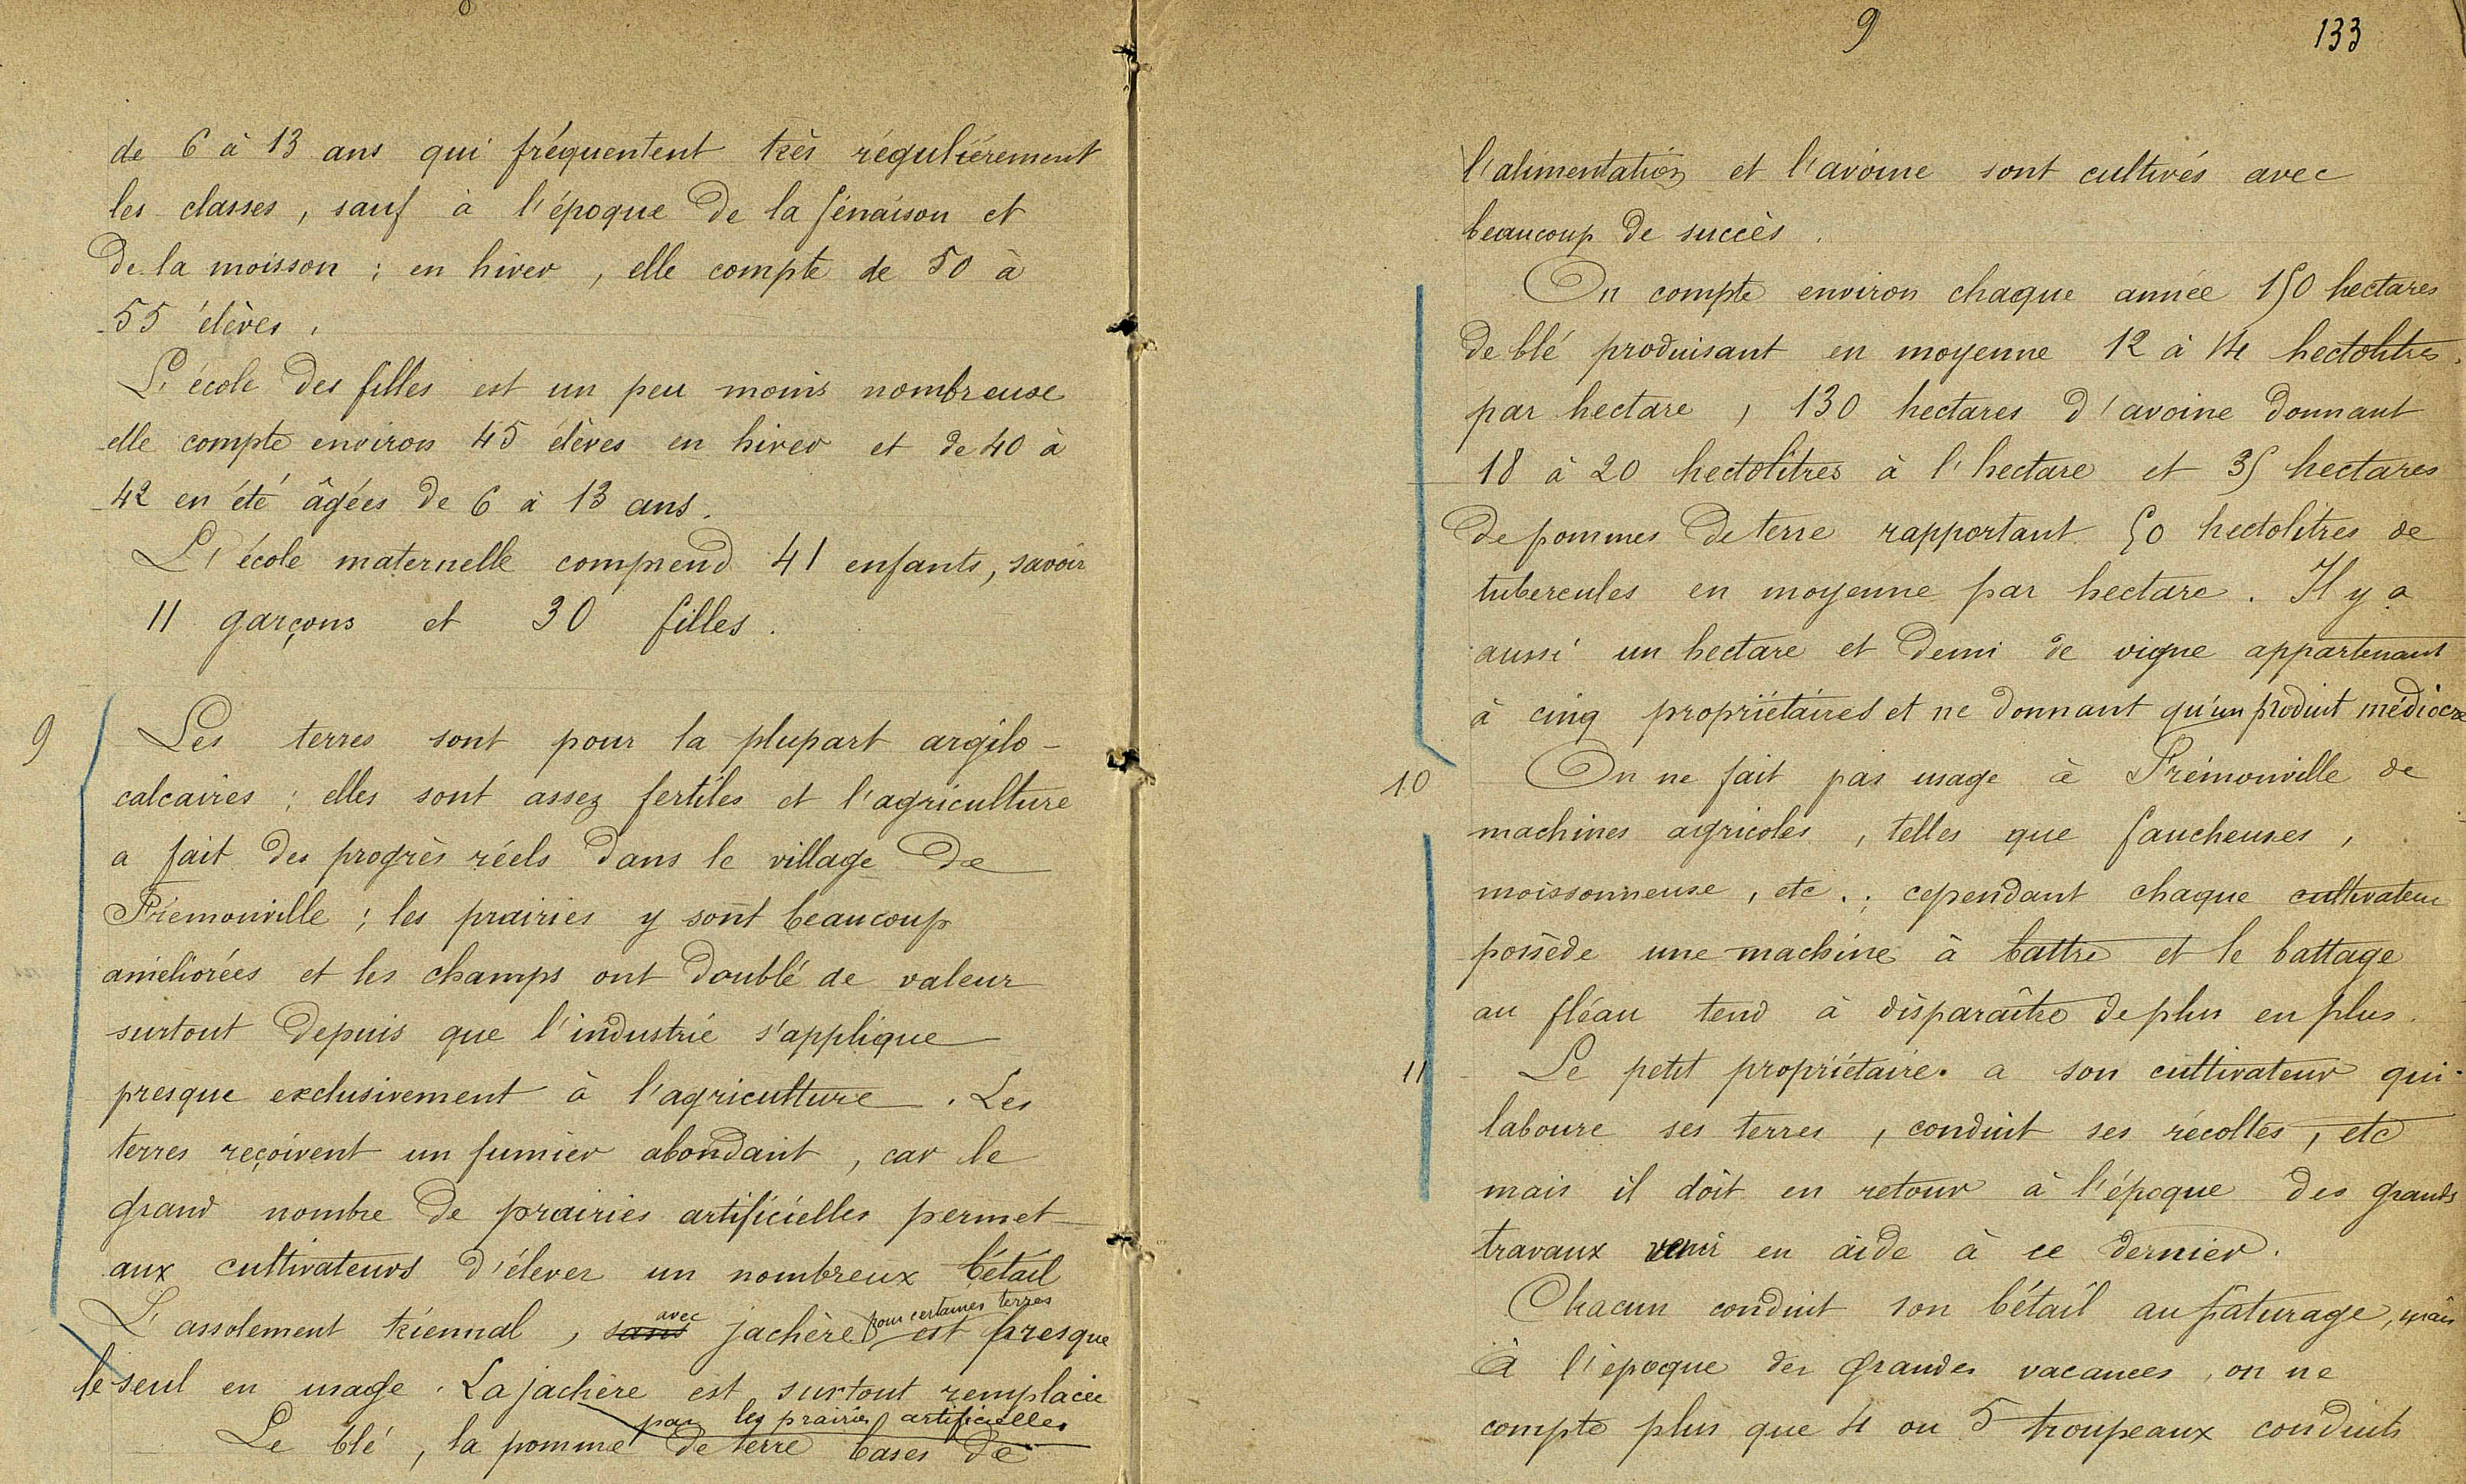 8
de 6 à 13 ans qui fréquentent très régulièrement
les classes, sauf à l'époque de la fénaison et
de la moisson ; en hiver, elle compte de 50 à
55 élèves.
L'école des filles est un peu moins nombreuse
elle compte environ 45 élèves en hiver et de 40 à
42 en été âgées de 6 à 13 ans.
L'école maternelle comprend 41 enfants, savoir
11 garçons et 30 filles.
9 Les terres sont pour la plupart argilo-
calcaires ; elles sont assez fertiles et l'agriculture
a fait des progrès réels dans le village de
Frémonville ; les prairies y sont beaucoup
améliorées et les champs ont doublé de valeur
surtout depuis que l'industrie s'applique
presque exclusivement à l'agriculture. Les
terres reçoivent un fumier abondant, car le
grand nombre de prairies artificielles permet
aux cultivateurs d'élever un nombreux bétail
avec pour certaines terres
L'assolement triennal, sans jachère est presque
le seul en usage. La jachère est surtout remplacée
par les prairies artificielles.
Le blé, la pomme de terre bases de
9
133
l'alimentation et l'avoine sont cultivés avec
beaucoup de succès.
On compte environ chaque année 150 hectares
de blé produisant en moyenne 12 à 14 hectolitres
par hectare, 130 hectares d'avoine donnant
18 à 20 hectolitres à l'hectare et 35 hectares
de pommes de terre rapportant 50 hectolitres de
tubercules en moyenne par hectare. Il y a
aussi un hectare et demi de vigne appartenant
à cinq propriétaires et ne donnant qu'un produit médiocre
10 On ne fait pas usage à Frémonville de
machines agricoles, telles que faucheuses,
moissonneuse, etc. ; cependant chaque cultivateur
possède une machine à battre et le battage
au fléau tend à disparaître de plus en plus.
11 Le petit propriétaire a son cultivateur qui
laboure ses terres, conduit ses récoltes, etc
mais il doit en retour à l'époque des grands
travaux venir en aide à ce dernier.
Chacun conduit son bétail au pâturage, mais
à l'époque des grandes vacances, on ne
compte plus que 4 ou 5 troupeaux conduits